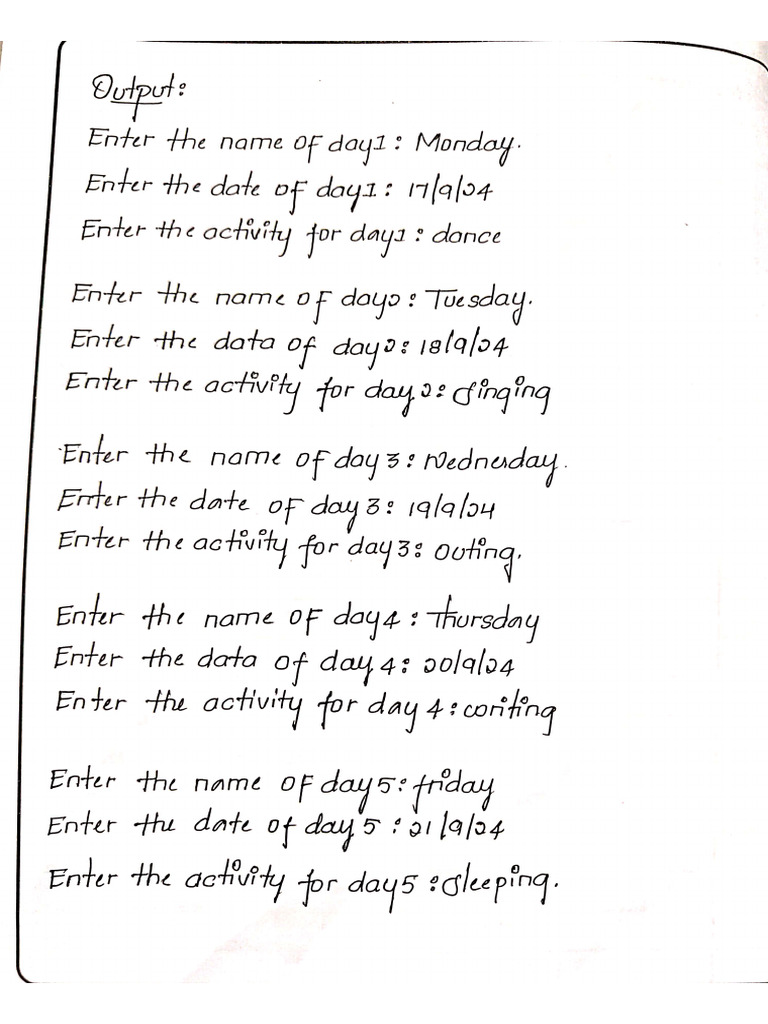 Output:
Enter the name of day1: Monday.
Enter the date of day1: 17/9/24
Enter the activity for day1: dance
Enter the name of day2: Tuesday.
Enter the data of day2: 18/9/24
Enter the activity for day2: Singing
Enter the name of day3: Wednesday.
Enter the date of day3: 19/9/24
Enter the activity for day3: Outing.
Enter the name of day4: Thursday
Enter the data of day4: 20/9/24
Enter the activity for day4: writing
Enter the name of day5: friday
Enter the date of day5: 21/9/24
Enter the activity for day5: Sleeping.